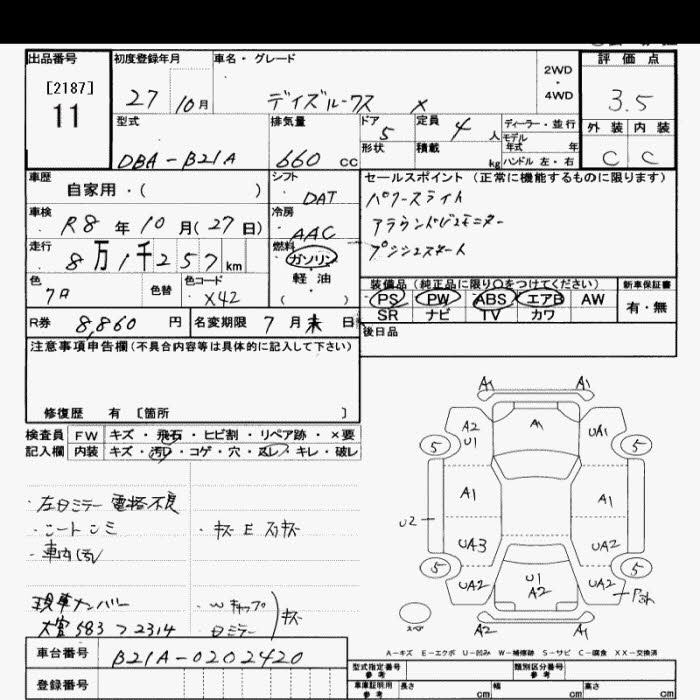 出品番号
[2187]
11
初度登録年月
27 10月
車名・グレード
デイズルークス X
2WD
・
4WD
評価点
3.5
型式
DBA-B21A
排気量
660 cc
ドア
5
形状
定員
4人
積載
kg
ディーラー・並行
モデル年式 年
ハンドル 左・右
外装 内装
C C
車歴
自家用・( )
シフト
DAT
車検
R8年10月(27日)
冷房
AAC
走行
8万1千257km
燃料
ガソリン
軽油
( )
色
色替
色コード
X42
セールスポイント (正常に機能するものに限ります)
パワースライド
アラウンドビューモニター
プッシュスタート
装備品(純正品に限り○をつけてください)
PS PW ABS エアB AW
SR ナビ TV カワ
新車保証書
有・無
R券 8,860円
名変期限 7月末日
後日品
注意事項申告欄(不具合内容等は具体的に記入して下さい)
修復歴 有 〔箇所 〕
検査員 FW キズ・飛石・ヒビ割・リペア跡・×要
記入欄 内装 キズ・汚れ・コゲ・穴・スレ・キレ・破レ
左日ミラー 電格不良
・車内汚レ
現車ナンバー
大宮583 つ 2314
車台番号 B21A-0202420
登録番号
A1 A1
A2 U1 A1 UA1
5 5
A1 A1
U2
UA3 UA2
5 5
UA2 U1 A2 UA2
A2 A1
A-キズ E-エクボ U-凹み W-補修跡 S-サビ C-腐食 XX-交換済
型式指定番号 参考
類別区分番号 参考
車庫証明用 参考
長さ cm
幅 cm
高さ cm